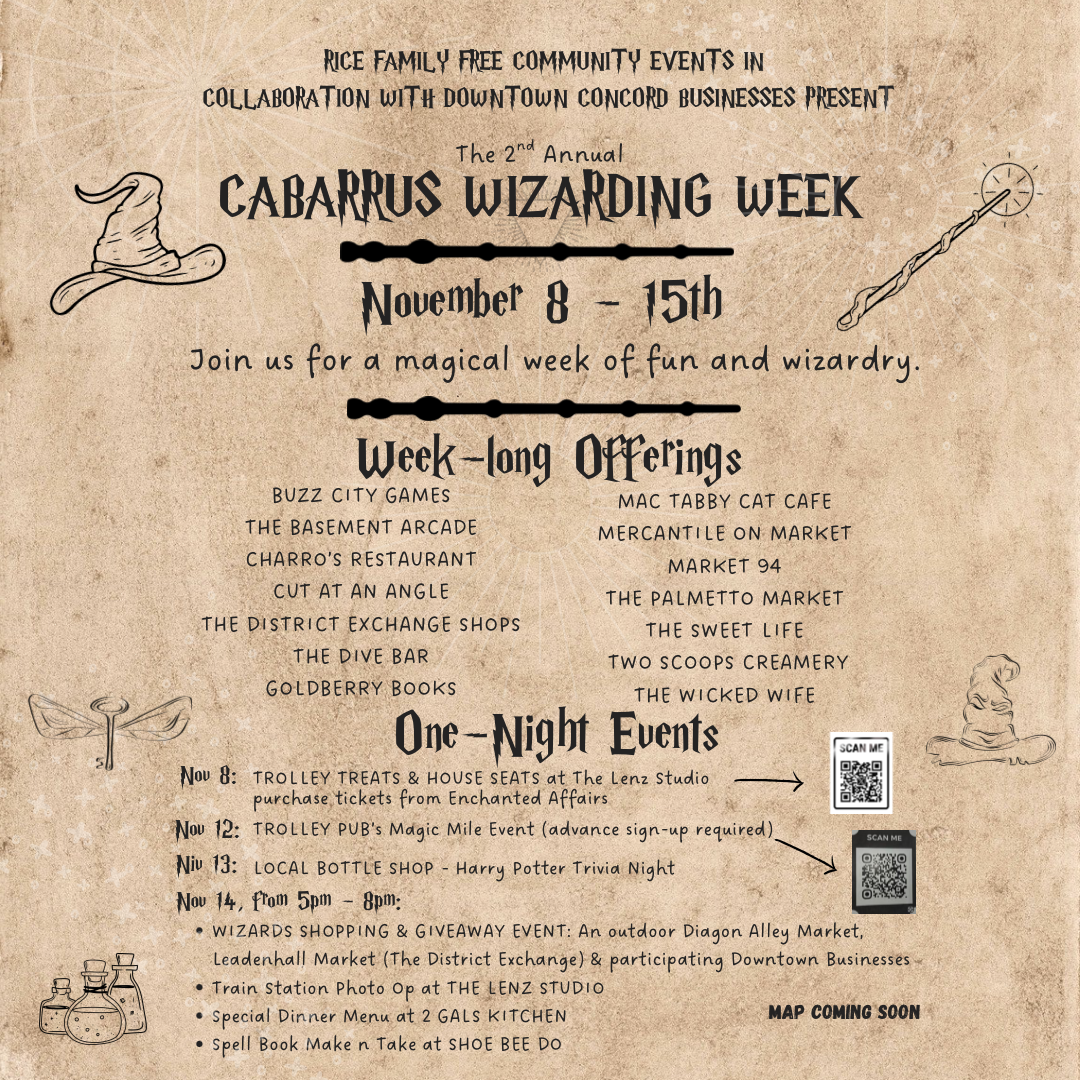 RICE FAMILY FREE COMMUNITY EVENTS IN
COLLABORATION WITH DOWNTOWN CONCORD BUSINESSES PRESENT
The 2nd Annual
CABARRUS WIZARDING WEEK
November 8 - 15th
Join us for a magical week of fun and wizardry.
Week-long Offerings
BUZZ CITY GAMES
THE BASEMENT ARCADE
CHARRO'S RESTAURANT
CUT AT AN ANGLE
THE DISTRICT EXCHANGE SHOPS
THE DIVE BAR
GOLDBERRY BOOKS
MAC TABBY CAT CAFE
MERCANTILE ON MARKET
MARKET 94
THE PALMETTO MARKET
THE SWEET LIFE
TWO SCOOPS CREAMERY
THE WICKED WIFE
One-Night Events
Nov 8: TROLLEY TREATS & HOUSE SEATS at The Lenz Studio
purchase tickets from Enchanted Affairs
SCAN ME
Nov 12: TROLLEY PUB's Magic Mile Event (advance sign-up required)
SCAN ME
Niv 13: LOCAL BOTTLE SHOP - Harry Potter Trivia Night
Nov 14, from 5pm - 8pm:
• WIZARDS SHOPPING & GIVEAWAY EVENT: An outdoor Diagon Alley Market,
Leadenhall Market (The District Exchange) & participating Downtown Businesses
• Train Station Photo Op at THE LENZ STUDIO
• Special Dinner Menu at 2 GALS KITCHEN
• Spell Book Make n Take at SHOE BEE DO
MAP COMING SOON